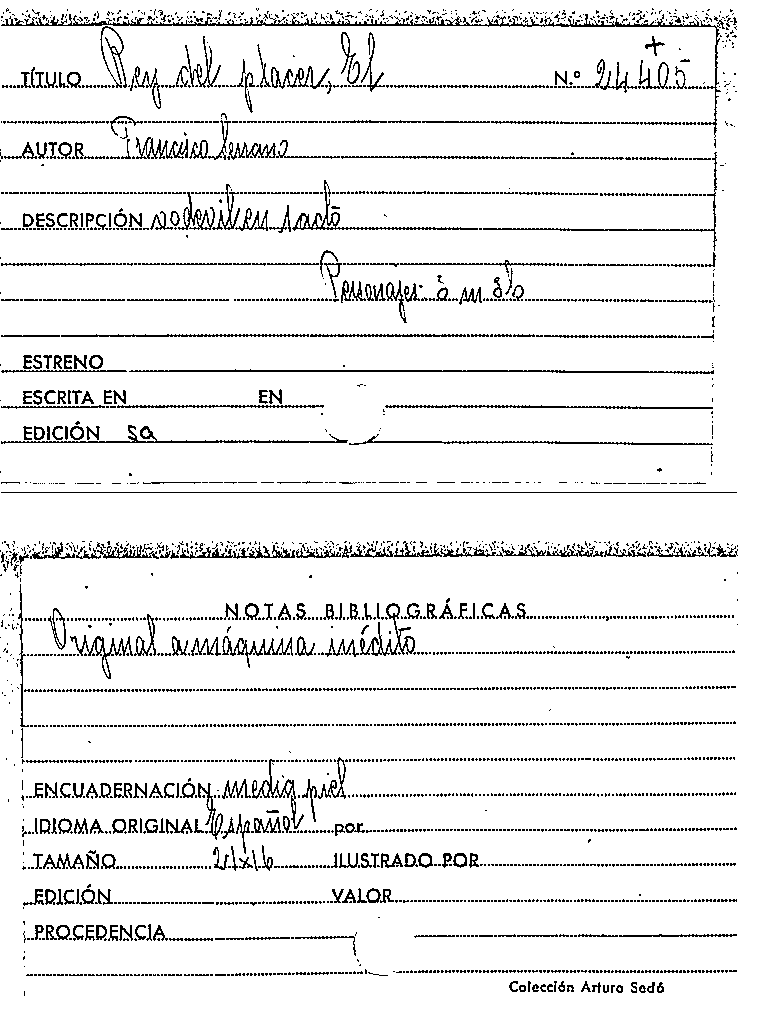 TÍTULO Rey del placer, El N.º 24405
AUTOR Francisco Serrano
DESCRIPCIÓN vodevil en 1 acto
Personajes m
ESTRENO
ESCRITA EN EN
EDICIÓN sa
NOTAS BIBLIOGRÁFICAS
Original a máquina inédito
ENCUADERNACIÓN media piel
IDIOMA ORIGINAL Español por
TAMAÑO 21x16 ILUSTRADO POR
EDICIÓN VALOR
PROCEDENCIA
Colección Arturo Sedó